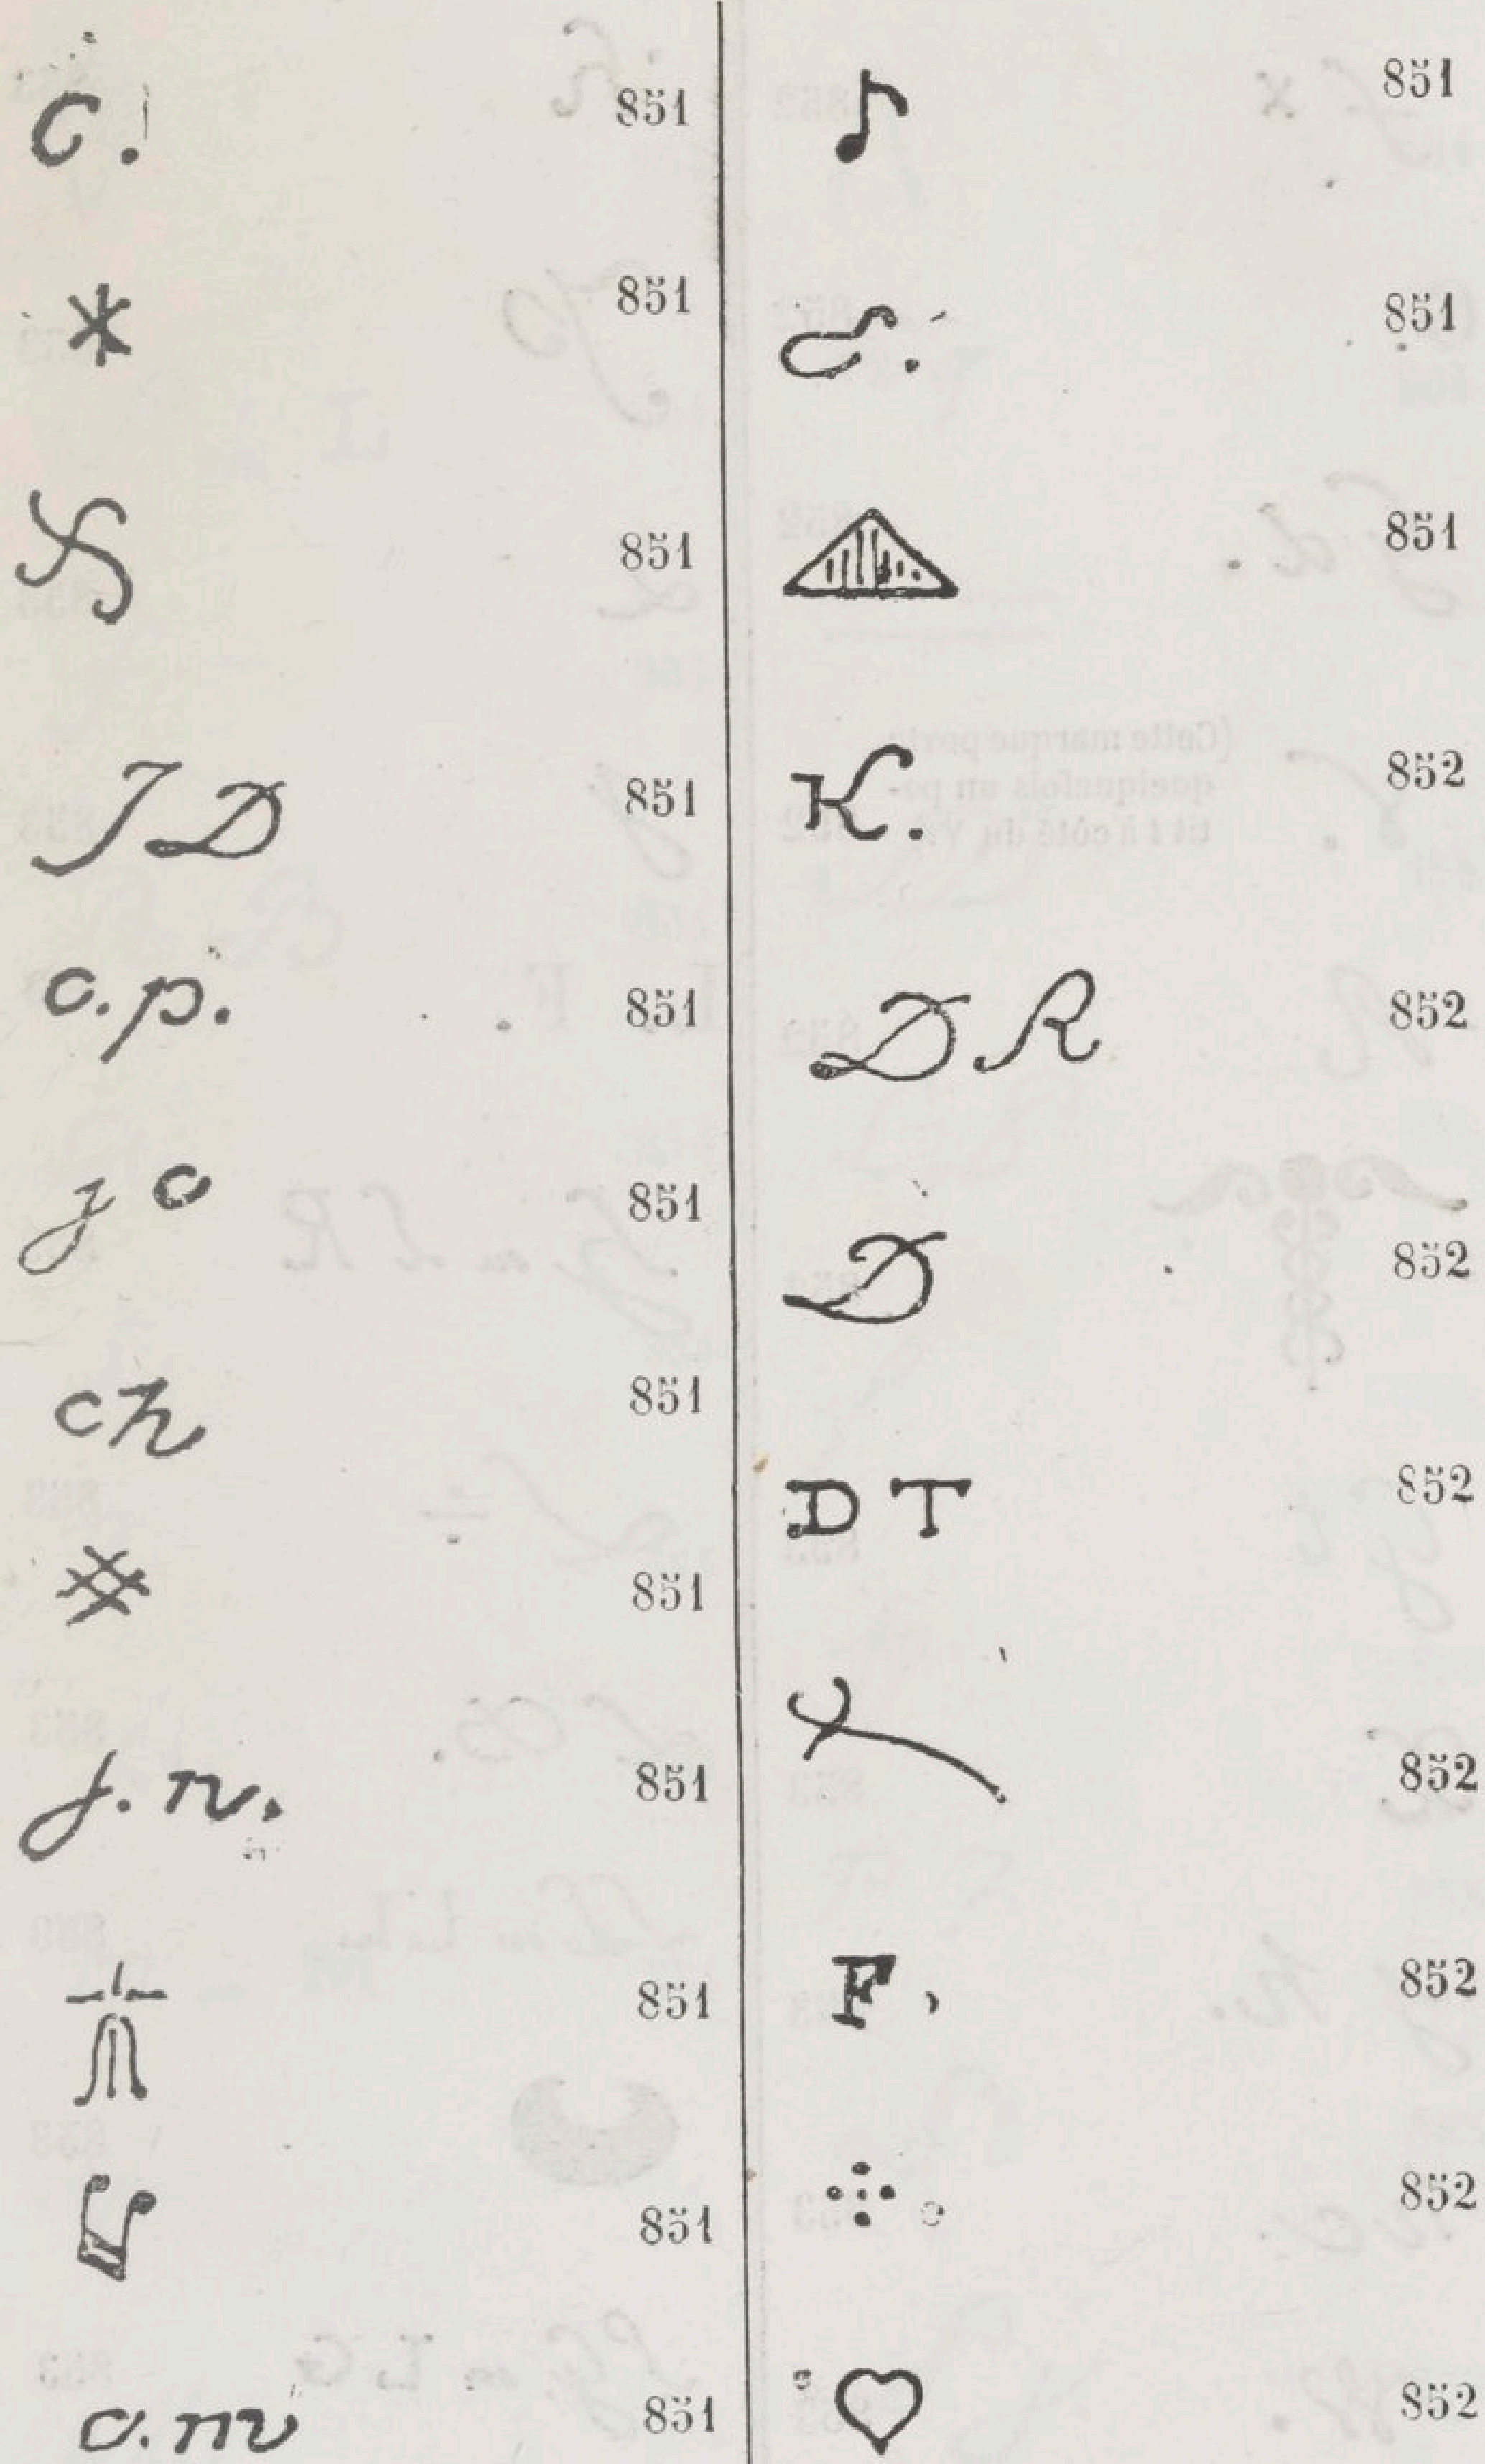 C. 851
851
851
J D 851
c.p. 851
j c 851
ch 851
851
j. n. 851
851
851
c.m 851
851
851
851
K. 852
D R 852
D 852
D T 852
852
F. 852
852
852